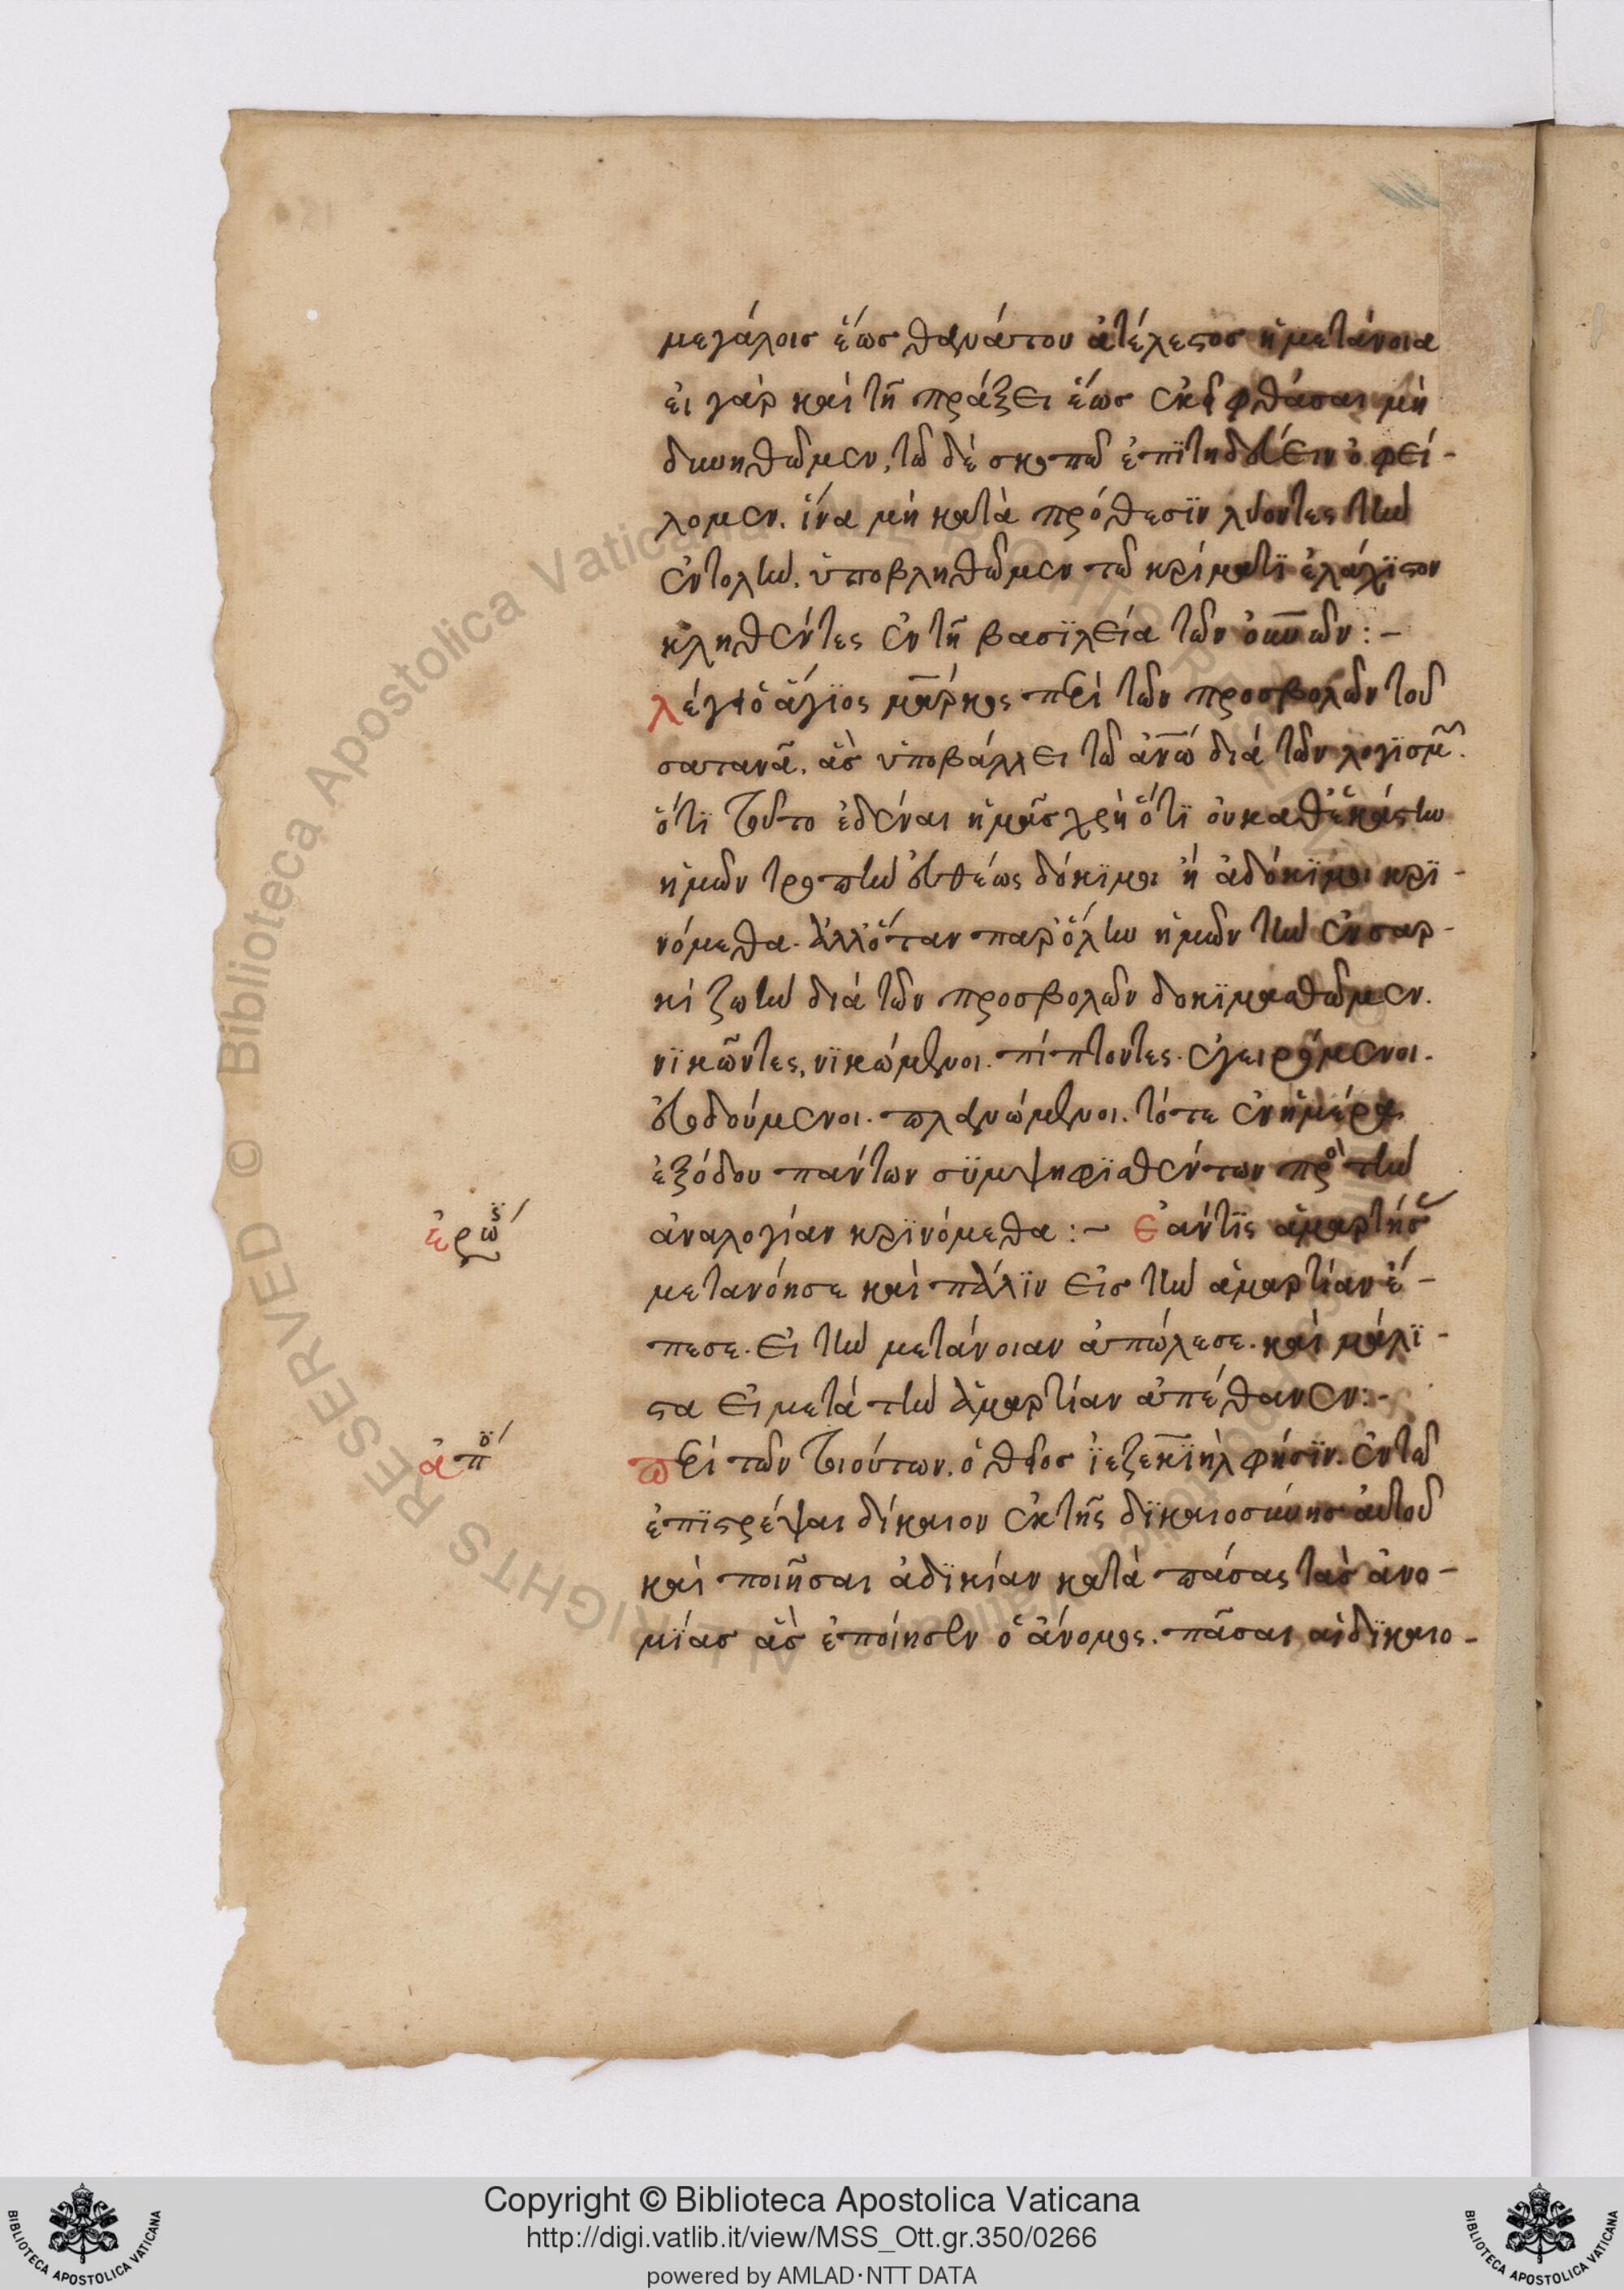 μεγάλοισ ἕωσ θανάτου ἀτέλεστοσ ἡ μετάνοια
εἰ γὰρ καὶ τῆ πράξει ἕωσ ἐκεῖ φθάσαι μὴ
δυνηθῶμεν, τῶ δὲ σκοπῶ ἐπϊτηδεύειν ὀφεί-
λομεν. ἵνα μὴ κατὰ πρόθεσϊν λύοντες τὴν
ἐντολὴν, ὑποβληθῶμεν τῶ κρίματϊ ἐλάχϊστον
κληθέντες ἐν τῆ βασϊλεία τῶν οὐνῶν :-
λέγει ὁ ἅγϊος μάρκος περὶ τῶν προσβολῶν τοῦ
σατανᾶ. ἃσ ὑποβάλλει τῶ ἀνω διά τῶν λογϊσμ.
ὅτϊ τοῦτο ἐδέναι ἡμᾶσ χρὴ ὅτϊ οὐ καθ ἑκάστην
ἡμῶν τροπὴν εὐθέως δόκϊμοι ἢ ἀδόκϊμοι κρϊ-
νόμεθα. ἀλλ ὅταν παρ ὅλην ἡμῶν τὴν ἐν σαρ-
κὶ ζωὴν διά τῶν προσβολῶν δοκϊμασθῶμεν.
νϊκῶντες, νϊκώμενοι. πίπτοντες. ἐγειρόμενοι.
εὐοδούμενοι. πλανώμενοι. τότε ἐν ἡμέρα
ἐξόδου πάντων σϋμψηφϊσθέντων πρὸ τὴν
ἀναλογίαν κρϊνόμεθα :- ἐάν τϊς ἁμαρτήσ
ἐρώ
μετανόησε καὶ πάλϊν εἰσ τὴν ἁμαρτίαν ἔ-
πεσε. εἰ τὴν μετάνοιαν ἀπώλεσε. καὶ μάλϊ-
στα εἰ μετά τὴν ἁμαρτίαν ἀπέθανεν:-
ἀπό
περὶ τῶν τοιούτων. ὁ θεῖος ϊεζεκϊὴλ φήσϊν. ἐν τῶ
ἐπϊστρέψαι δίκαιον ἐκ τῆς δϊκαιοσύνησ αὐτοῦ
καὶ ποιῆσαι ἀδϊκίαν κατὰ πάσας τὰσ ἀνο-
μϊασ ἃσ ἐποίησεν ὁ ἄνομος. πᾶσαι αἱ δϊκαιο-
Copyright © Biblioteca Apostolica Vaticana
http://digi.vatlib.it/view/MSS_Ott.gr.350/0266
powered by AMLAD·NTT DATA
BIBLIOTECA APOSTOLICA VATICANA
BIBLIOTECA APOSTOLICA VATICANA